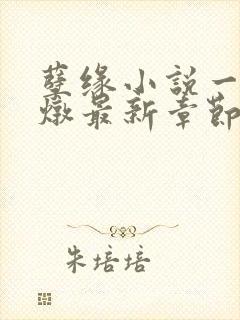 孽缘小说一
燉最新章節
朱培培